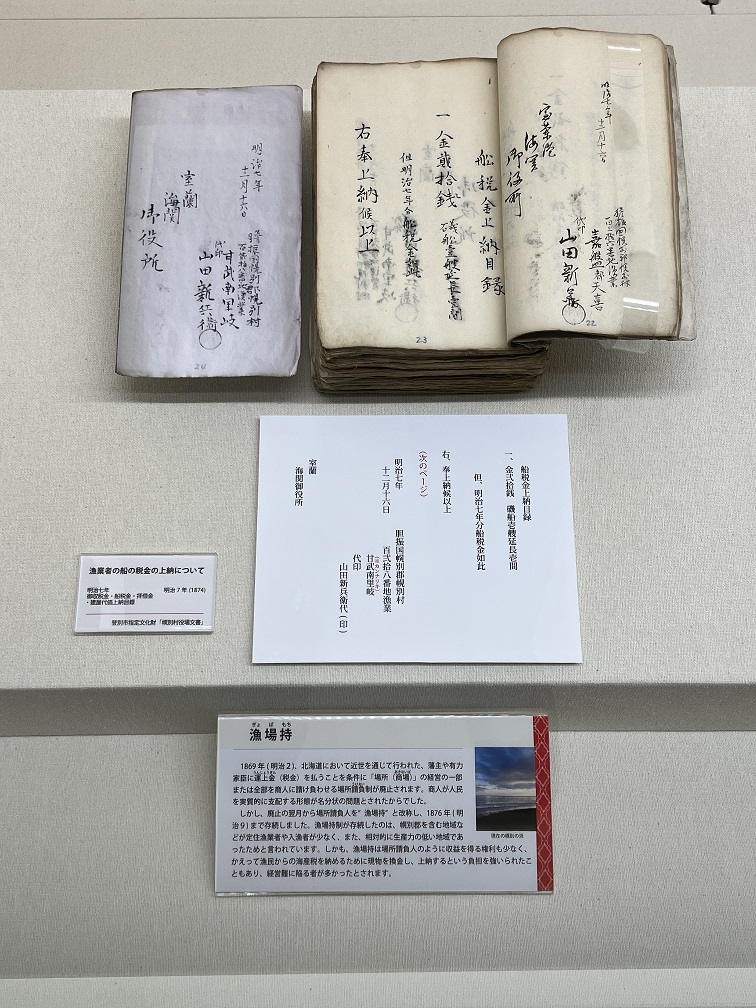 明治七年
十二月十六日
室蘭
海関
御役所
胆振国幌別郡幌別村
百弐拾八番地漁業
甘武南里岐
代印
山田新兵衛
24
一金貮拾銭
但明治七年分船税金
右奉上納候以上
船税金上納目録
23
明治七年
十二月十六日
海関
御役所
代印
山田新
22
船税金上納目録
一、金弐拾銭 磯船壱艘延長壱間
但、明治七年分船税金如此
右、奉上納候以上
(次のページ)
明治七年
十二月十六日
胆振国幌別郡幌別村
百弐拾八番地漁業
甘武南里岐
代印
山田新兵衛代(印)
室蘭
海関御役所
漁業者の船の税金の上納について
明治七年 明治7年(1874)
登別市指定文化財「幌別村役場文書」
ぎょ ば もち
漁場持
1869年(明治2)、北海道において近世を通じて行われた、藩主や有力
家臣に運上金(税金)を払うことを条件に「場所(商場)」の経営の一部
または全部を商人に請け負わせる場所請負制が廃止されます。商人が人民
を実質的に支配する形態が名分状の問題とされたからでした。
しかし、廃止の翌月から場所請負人を“漁場持”と改称し、1876年(明
治9)まで存続しました。漁場持制が存続したのは、幌別郡を含む地域な
どが定住漁業者や入漁者が少なく、また、相対的に生産力の低い地域であ
ったためと言われています。しかも、漁場持は場所請負人のように収益を得る権利も少なく、
かえって漁民からの海産税を納めるために現物を換金し、上納するという負担を強いられたこ
ともあり、経営難に陥る者が多かったとされます。
現在の幌別の浜